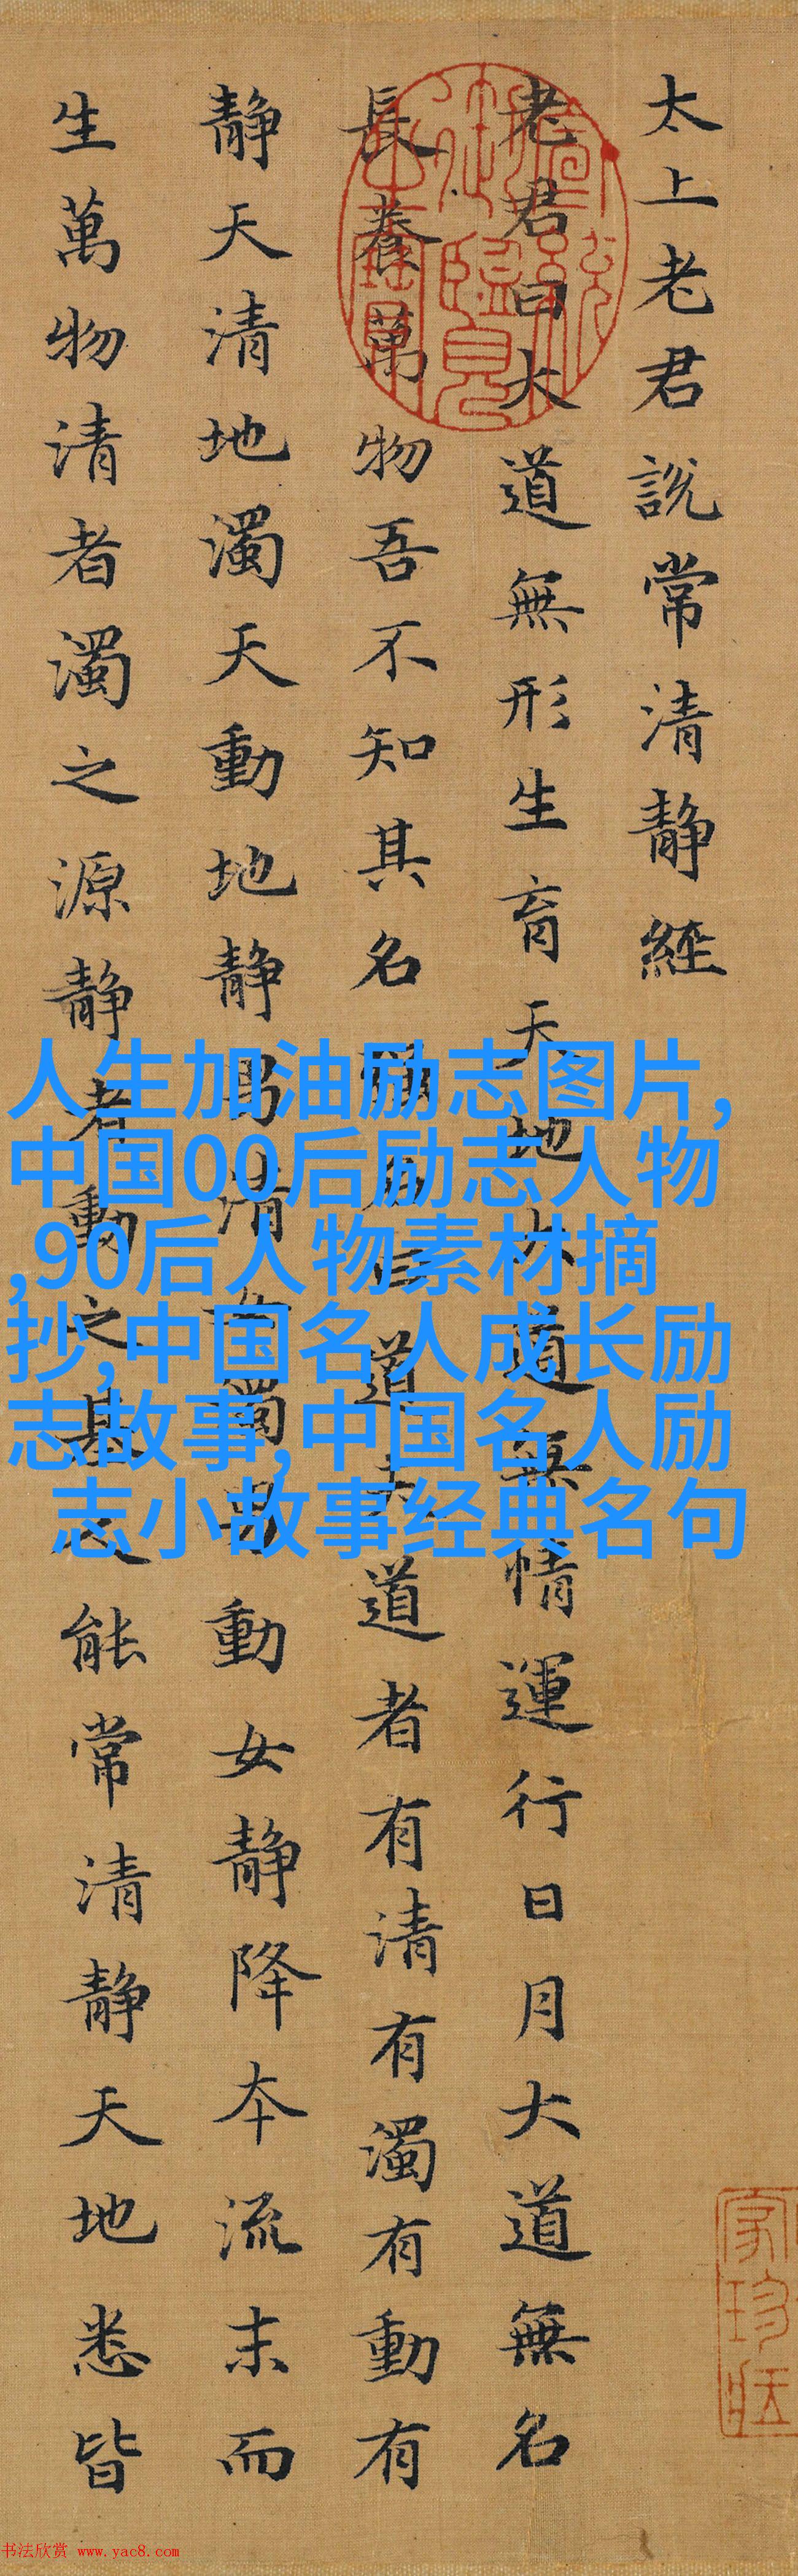 太上老君說常清静經
老君曰大道無形生育天地大道無情運行日月大道無名
長養萬物吾不知其名强名曰道夫道者有清有濁有動有
静天清地濁天動地静男清女濁男動女静降本流末而
生萬物清者濁之源静者動之基人能常清静天地悉皆
宣統御覽之寶
人生加油励志图片,
中国00后励志人物
,90后人物素材摘
抄,中国名人成长励
志故事,中国名人励
志小故事经典名句
书法欣赏 www.yac8.com